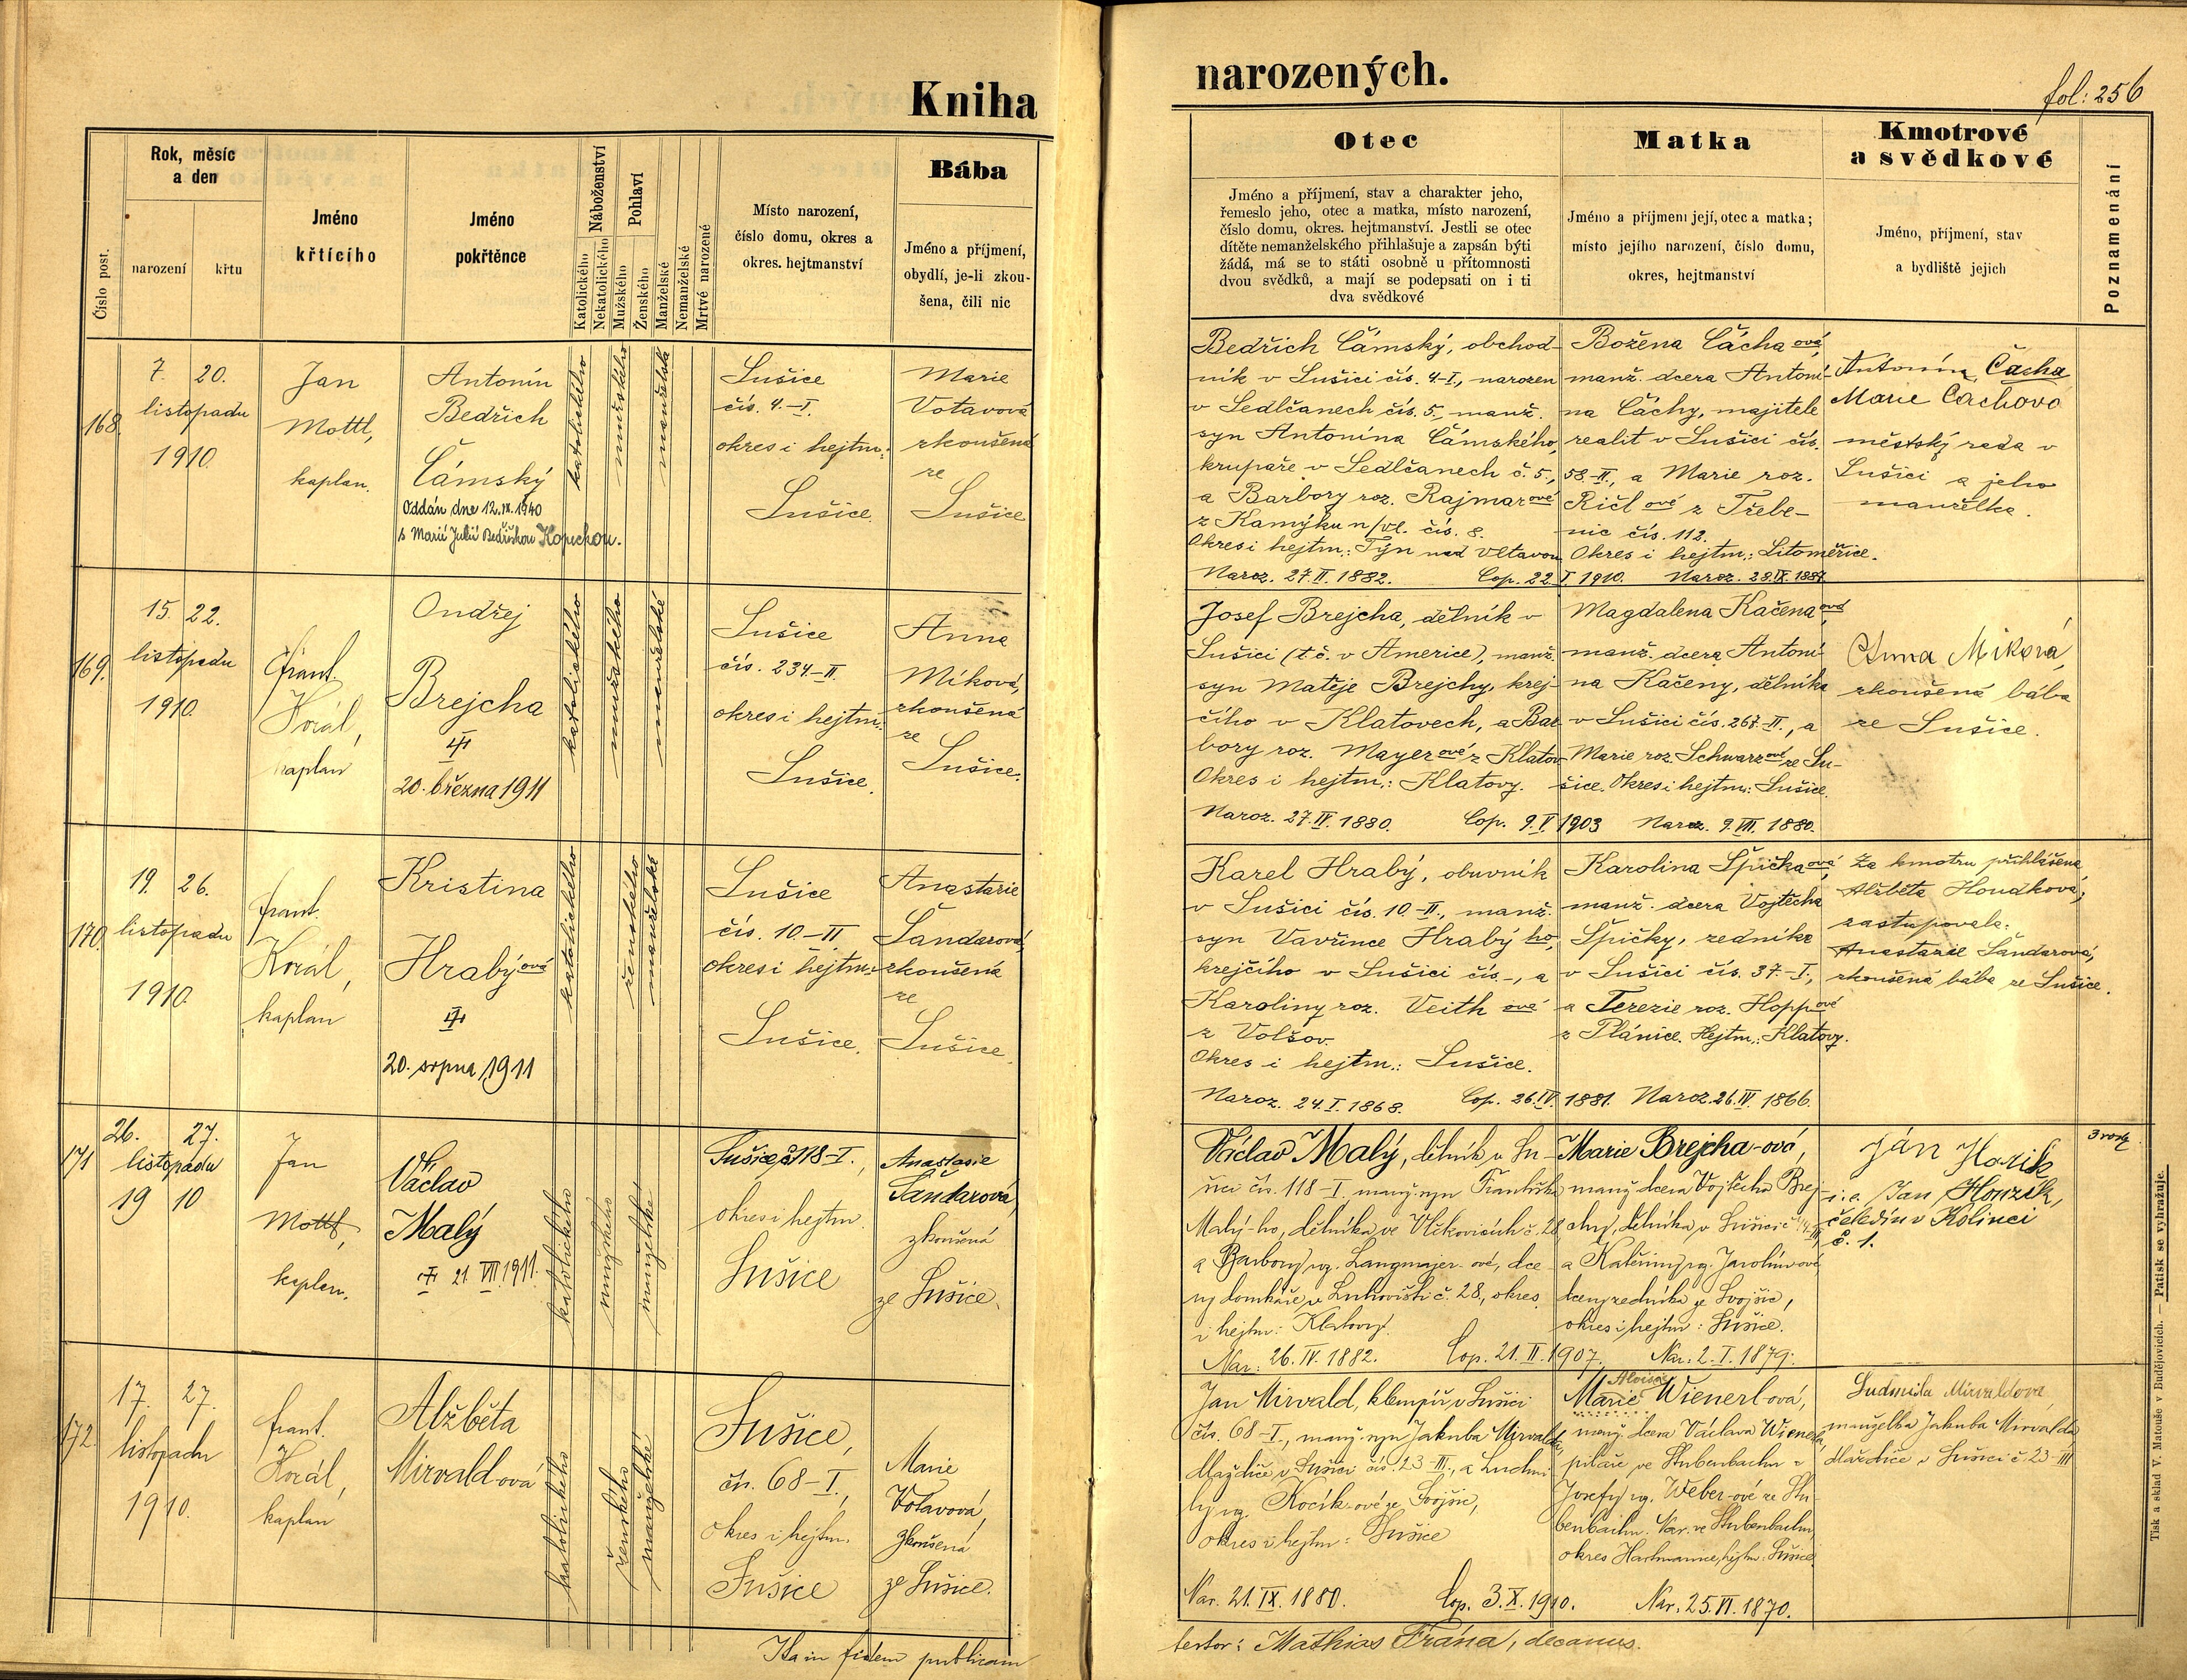 Kniha
narozených.
fol: 256
Číslo post.
Rok, měsíc
a den
narození
křtu
Jméno
křtícího
Jméno
pokřtěnce
Náboženství
Katolického
Nekatolického
Pohlaví
Mužského
Ženského
Manželské
Nemanželské
Mrtvé narozené
Místo narození,
číslo domu, okres a
okres. hejtmanství
Bába
Jméno a příjmení,
obydlí, je-li zkou-
šena, čili nic
Otec
Jméno a příjmení, stav a charakter jeho,
řemeslo jeho, otec a matka, místo narození,
číslo domu, okres. hejtmanství. Jestli se otec
dítěte nemanželského přihlašuje a zapsán býti
žádá, má se to státi osobně u přítomnosti
dvou svědků, a mají se podepsati on i ti
dva svědkové
Matka
Jméno a příjmení její, otec a matka;
místo jejího narození, číslo domu,
okres, hejtmanství
Kmotrové
a svědkové
Jméno, příjmení, stav
a bydliště jejich
Poznamenání
168.
7. 20.
listopadu
1910.
Jan
Mottl,
kaplan.
Antonín
Bedřich
Čámský
Oddán dne 12.IX.1940
s Marií Julií Bedřiškou Kopeckou.
katolického
mužského
manželské
Sušice
čís. 4.-I.
okres i hejtm.:
Sušice.
Marie
Votavová
zkoušená
ze
Sušice
Bedřich Čámský, obchod-
ník v Sušici čís. 4-I., narozen
v Sedlčanech čís. 5., manž.
syn Antonína Čámského,
krupaře v Sedlčanech č. 5.,
a Barbory roz. Rajmarové
z Kamýku n/vl. čís. 8.
Okres i hejtm.: Týn nad Vltavou
Naroz. 27.II.1882. Cop. 22.I.1910.
Božena Čáchaová,
manž. dcera Antoní-
na Čáchy, majitele
realit v Sušici čís.
58-II., a Marie roz.
Ričlové z Třebe-
nic čís. 112.
Okres i hejtm.: Litoměřice.
Naroz. 28.IX.1887.
Antonín Čácha
Marie Čachova
městský rada v
Sušici a jeho
manželka.
169.
15. 22.
listopadu
1910.
Frant.
Korál,
kaplan
Ondřej
Brejcha
20. března 1911
katolického
mužského
manželské
Sušice
čís. 234-II
okres i hejtm.
Sušice.
Anna
Míková,
zkoušená
ze
Sušice.
Josef Brejcha, dělník v
Sušici (t. č. v Americe), manž.
syn Matěje Brejchy, krej-
čího v Klatovech, a Bar-
bory roz. Mayerové z Klatov
Okres i hejtm.: Klatovy.
Naroz. 27.IV.1880. Cop. 9.V.1903
Magdalena Kačenaová,
manž. dcera Antoní-
na Kačeny, dělníka
v Sušici čís. 267.-II., a
Marie roz. Schwarzové ze Su-
šice. Okres i hejtm.: Sušice.
Naroz. 9.VIII.1880.
Anna Miková,
zkoušená bába
ze Sušice.
170.
19. 26.
listopadu
1910.
Frant.
Korál,
kaplan
Kristina
Hrabýová
20. srpna 1911
katolického
ženského
manželské
Sušice
čís. 10-II
okres i hejtm.:
Sušice.
Anastazie
Šandarová,
zkoušená
ze
Sušice.
Karel Hrabý, obuvník
v Sušici čís. 10-II., manž.
syn Vavřince Hrabýho,
krejčího v Sušici čís. -, a
Karoliny roz. Veithové
z Volšov.
Okres i hejtm.: Sušice.
Naroz. 24.I.1868. Cop. 26.IV.1881.
Karolina Špičkaová,
manž. dcera Vojtěcha
Špičky, zedníka
v Sušici čís. 37.-I.,
a Terezie roz. Hoppové
z Plánice. Hejtm.: Klatovy.
Naroz. 26.IV.1866.
Za kmotru přihlášena
Alžběta Houdková;
zastupovala:
Anastazie Šandarová,
zkoušená bába ze Sušice.
171
26. 27.
listopadu
19 10
Jan
Mottl,
kaplan.
Václav
Malý
21. VIII.1911.
katolického
mužského
manželské
Sušice č. 118-I.,
okres i hejtm.
Sušice
Anastasie
Šandarová,
zkoušená
ze Sušice.
Václav Malý, dělník v Su-
šici čís. 118-I. manž. syn Františka
Malý-ho, dělníka ve Vlčkovicích č. 28
a Barbory roz. Langmajer-ové, dce-
ry domkáře z Lukoviště č. 28, okres
i hejtm.: Klatovy.
Nar: 26. IV. 1882. Cop. 21. II. 1907.
Marie Brejcha-ová,
manž. dcera Vojtěcha Brej-
chy, dělníka v Sušici
a Kateřiny roz. Jarolímové
dcery zedníka ze Svojšic,
okres i hejtm: Sušice.
Nar: 2. I. 1879.
Ján Horik
i. e. Jan Honzík,
čeledín v Kolinci
č. 1.
172.
17. 27.
listopadu
1910.
Frant.
Korál,
kaplan
Alžběta
Mirvald-ová
katolického
ženského
manželské
Sušice,
čís. 68-I.,
okres i hejtm.
Sušice
Marie
Votavová,
zkoušená
ze Sušice.
Jan Mirvald, klempíř v Sušici
čís. 68-I., manž. syn Jakuba Mirvalda,
dlaždiče v Sušici čís. 23-III., a Ludmi-
ly roz. Kocík-ové ze Svojšic,
okres i hejtm: Sušice
Nar. 21. IX. 1880. Cop. 3. X. 1910.
Aloisie
Marie Wienerl-ová,
manž. dcera Václava Wienerla,
pilaře ve Stubenbachu a
Josefy roz. Weber-ové ze Stu-
benbachu. Nar. ve Stubenbachu,
okres Hartmanice, hejtm: Sušice.
Nar. 25. VI. 1870.
Ludmila Mirvaldová
manželka Jakuba Mirvalda
dlaždiče v Sušici č. 23-III
Ita in fidem publicam
testor: Mathias Frána, decanus.
Tisk a sklad V. Matouše v Budějovicích. — Patisk se vyhražuje.